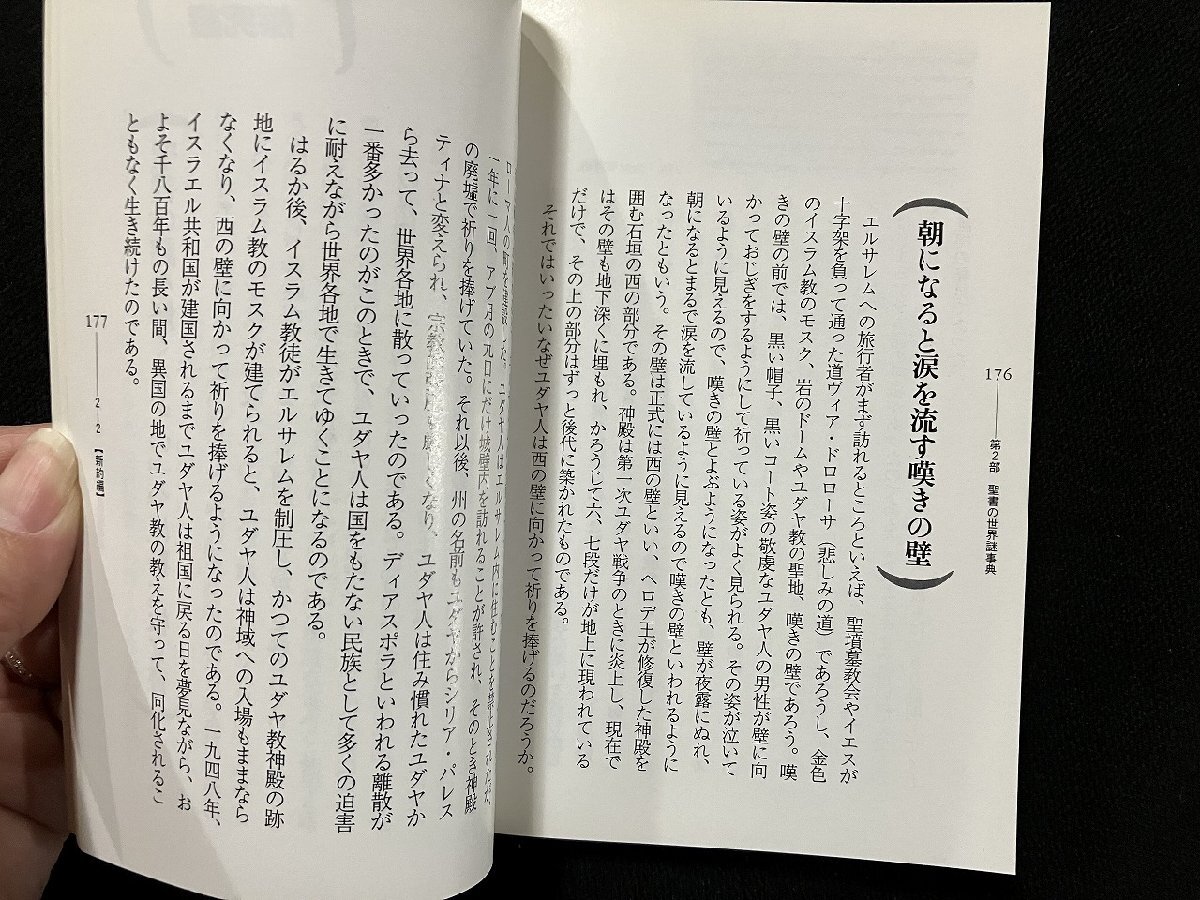 176
第2部 聖書の世界謎事典
朝になると涙を流す嘆きの壁
エルサレムへの旅行者がまず訪れるところといえば、聖墳墓教会やイエスが
十字架を負って通った道ヴィア・ドロローサ（悲しみの道）であろうし、金色
のイスラム教のモスク、岩のドームやユダヤ教の聖地、嘆きの壁であろう。嘆
きの壁の前では、黒い帽子、黒いコート姿の敬虔なユダヤ人の男性が壁に向
かっておじぎをするようにして祈っている姿がよく見られる。その姿が泣いて
いるように見えるので、嘆きの壁とよぶようになったとも、壁が夜露にぬれ、
朝になるとまるで涙を流しているように見えるので嘆きの壁といわれるように
なったともいう。その壁は正式には西の壁といい、ヘロデ王が修復した神殿を
囲む石垣の西の部分である。神殿は第一次ユダヤ戦争のときに炎上し、現在で
はその壁も地下深くに埋もれ、かろうじて六、七段だけが地上に現われている
だけで、その上の部分はずっと後代に築かれたものである。
それではいったいなぜユダヤ人は西の壁に向かって祈りを捧げるのだろうか。
ローマ人の町を建設した。ユダヤ人はエルサレム内に住むことを禁止されたが、
一年に一回、アブ月の九日にだけ城壁内を訪れることが許され、そのとき神殿
の廃墟で祈りを捧げていた。それ以後、州の名前もユダヤからシリア・パレス
ティナと変えられ、宗教 しくなり、ユダヤ人は住み慣れたユダヤか
ら去って、世界各地に散っていったのである。ディアスポラといわれる離散が
一番多かったのがこのときで、ユダヤ人は国をもたない民族として多くの迫害
に耐えながら世界各地で生きてゆくことになるのである。
はるか後、イスラム教徒がエルサレムを制圧し、かつてのユダヤ教神殿の跡
地にイスラム教のモスクが建てられると、ユダヤ人は神域への入場もままなら
なくなり、西の壁に向かって祈りを捧げるようになったのである。一九四八年、
イスラエル共和国が建国されるまでユダヤ人は祖国に戻る日を夢見ながら、お
よそ千八百年もの長い間、異国の地でユダヤ教の教えを守って、同化されるこ
ともなく生き続けたのである。
177
2-2【新約編】